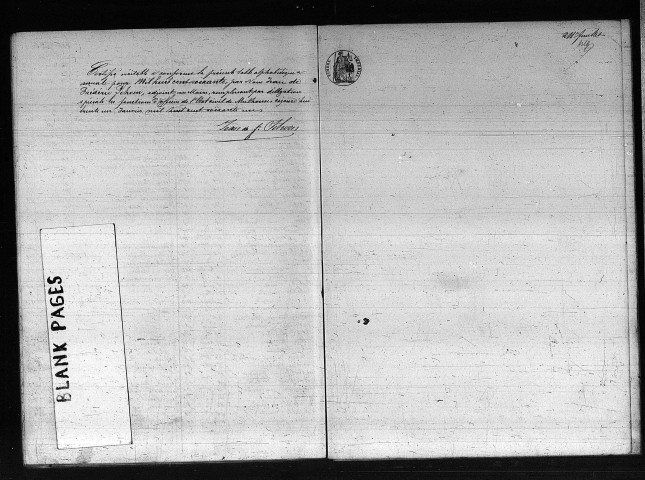 Certifié véritable et conforme la présente table alphabétique
annuelle pour Mil huit cent soixante, par Nous Isaac de
Frédéric Schoen, adjoint au Maire, remplissant par délégation
spéciale les fonctions d'officier de l'Etat civil de Mulhouse, ce jourd'hui
trente un Janvier mil huit cent soixante un.
Isaac de f. Schoen
BLANK PAGES